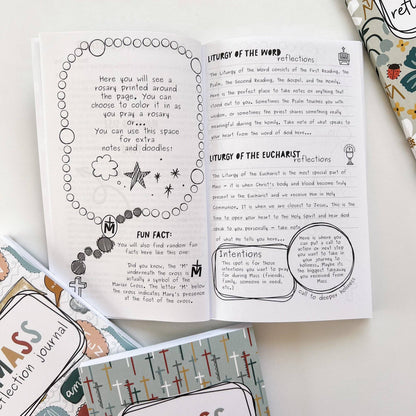 Here you will see
a rosary printed around
the page. You can
choose to color it in as
you pray a rosary
or...
You can use this space
for extra
notes and doodles!
M
FUN FACT:
You will also find random fun
facts here like this one:
Did you know, the "M"
underneath the cross is
actually a symbol of the
Marian Cross. The letter "M" below
the cross indicates Mary's presence
at the foot of the cross.
M
LITURGY OF THE WORD
reflections
The Liturgy of the Word consists of the First Reading, the
Psalm, the Second Reading, the Gospel, and the homily.
Here is the perfect place to take notes on anything that
stood out to you. Sometimes the Psalm touches you with
wisdom, or sometimes the priest shares something really
meaningful during the homily. Take note of what speaks to
your heart from the word of God here...
LITURGY OF THE EUCHARIST
reflections
The Liturgy of the Eucharist is the most special part of
Mass - it is when Christ's body and blood become truly
present in the Eucharist and we receive Him in Holy
Communion. It is when we are closest to Jesus. This is the
time to open your heart to the Holy Spirit and hear God
speak to you personally - take note
of what He tells you here...
Intentions
This spot is for those
intentions you want to pray
for during Mass (friends,
family, someone in need,
etc.)
Here is where you
can put a call to
action or something
you want to take in
your journey to
holiness. Maybe
it's the biggest
takeaway you
received from
Mass
call to deeper
MASS
reflection journal
MASS